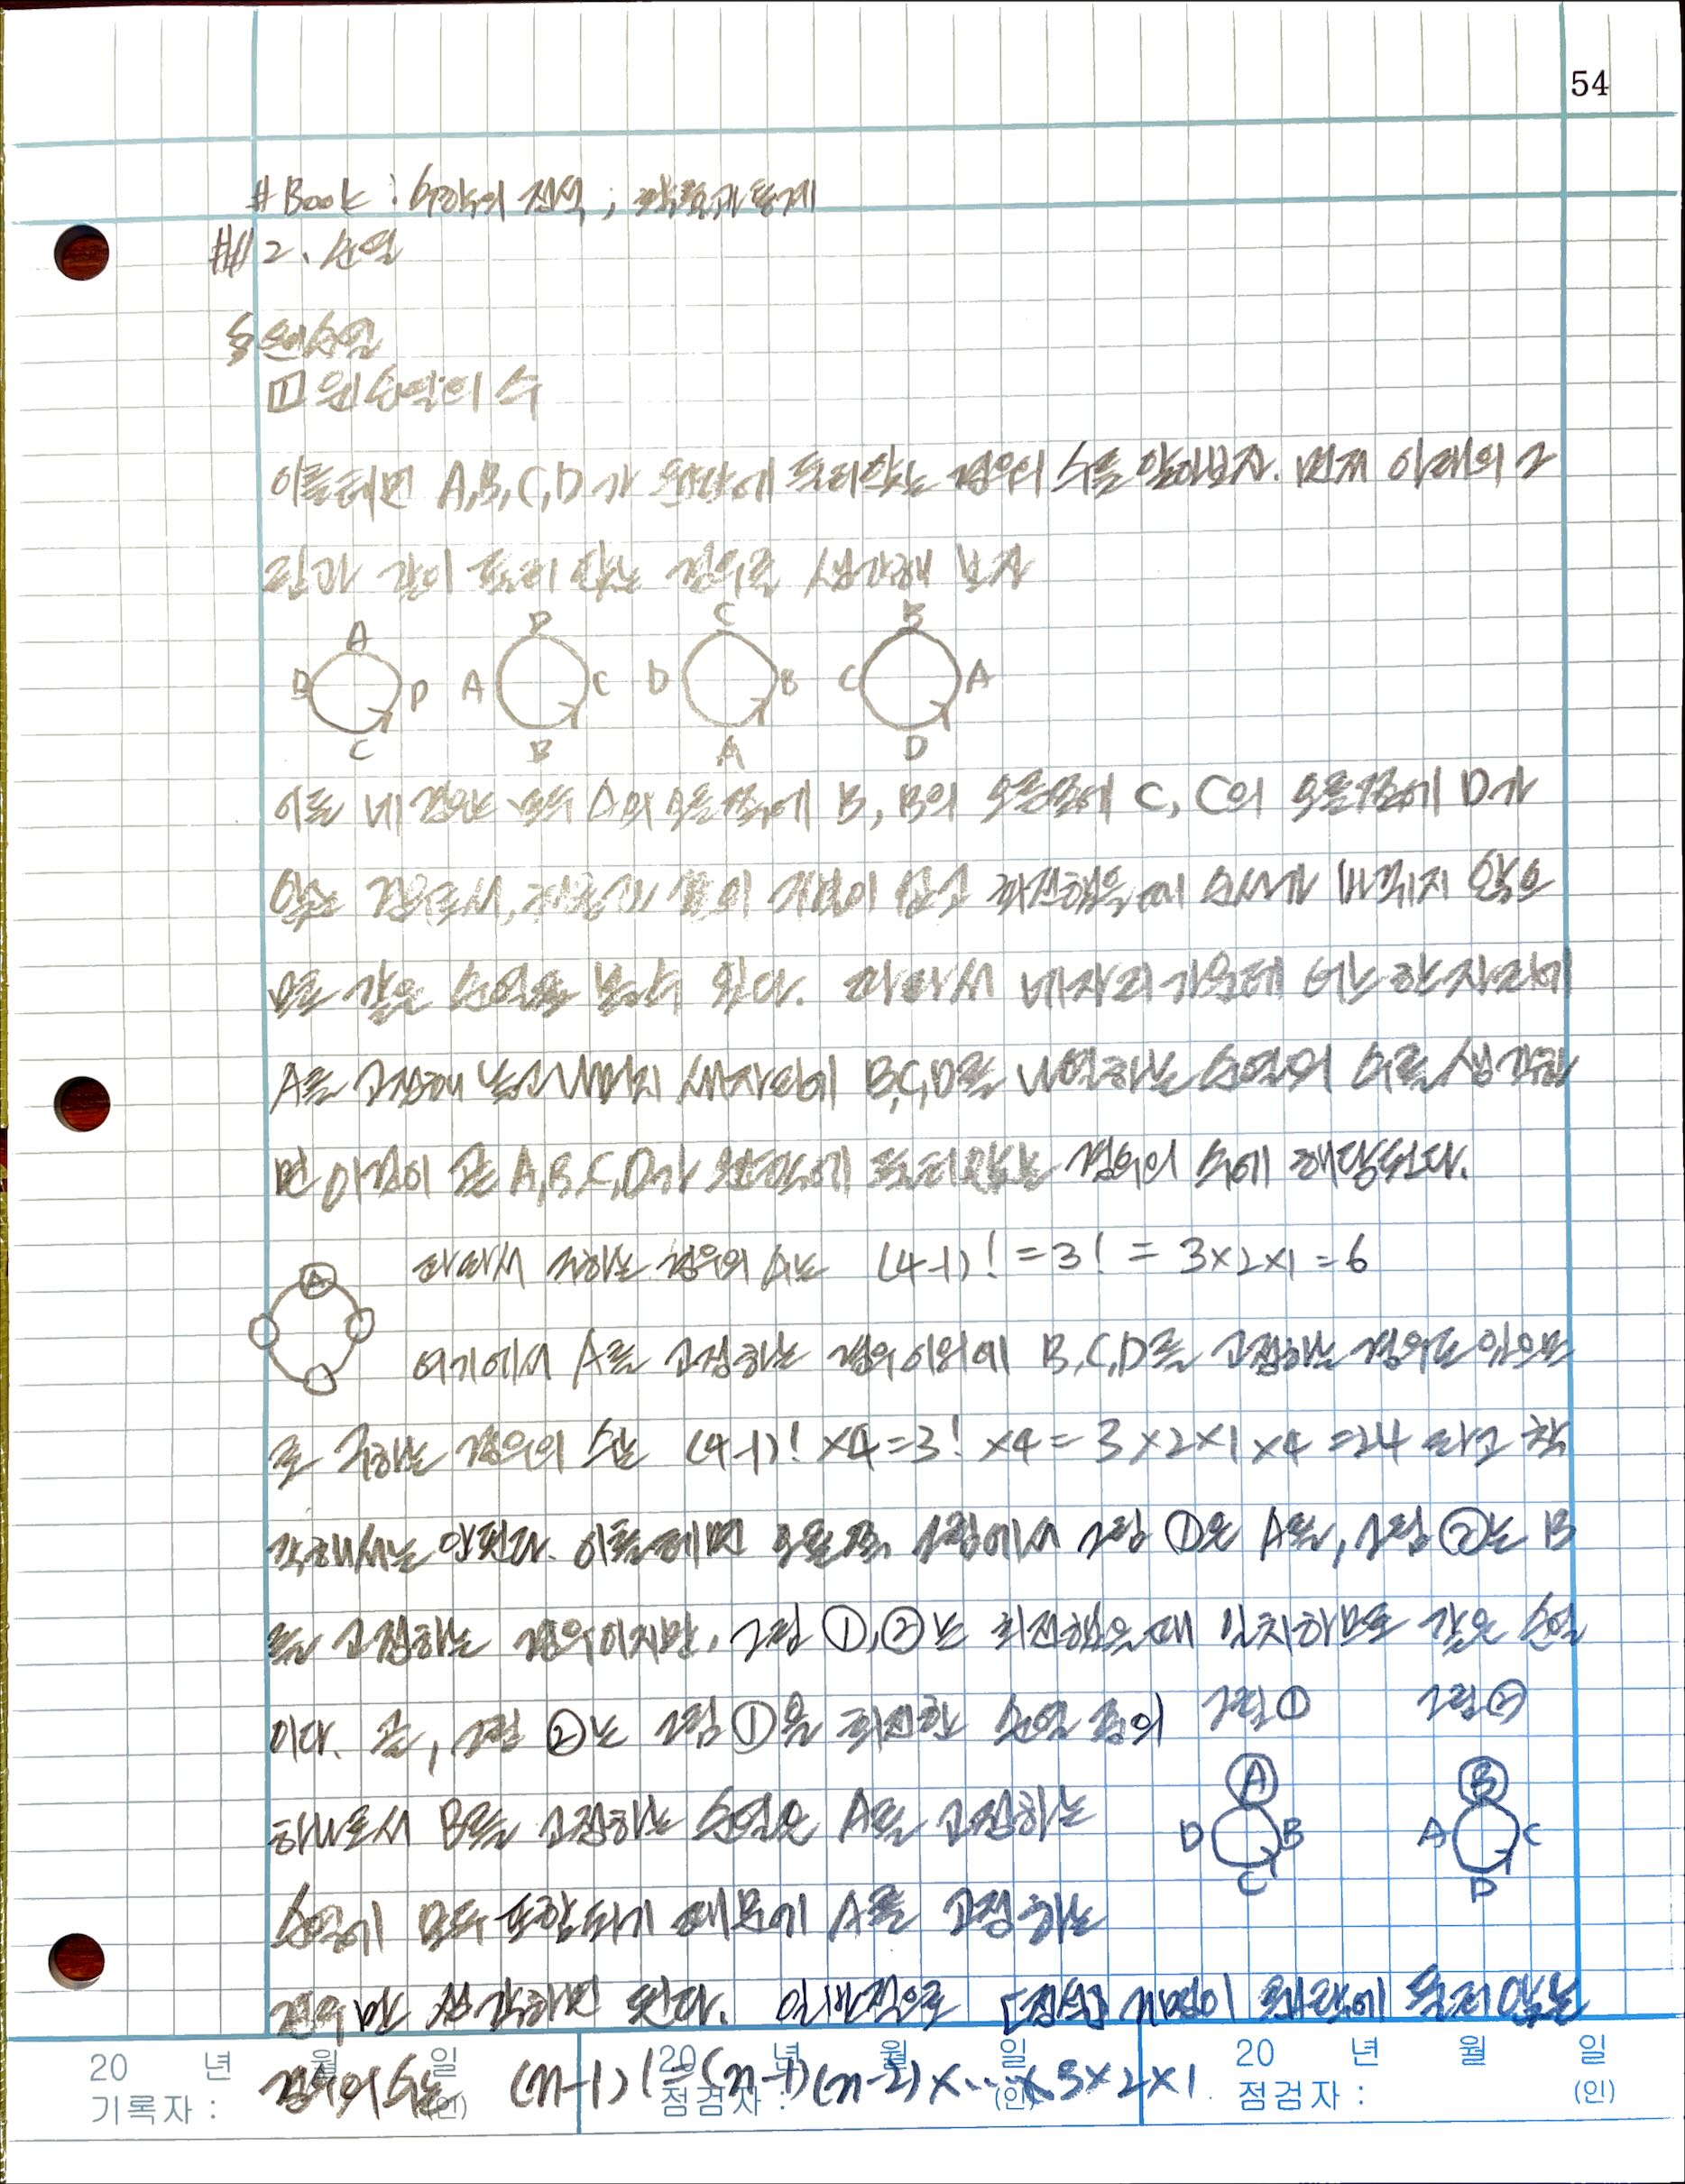 54
# Book : 수학의 정석 ; 확률과 통계
## 2. 순열
§ 원순열
1 원순열의 수
이를테면 A,B,C,D가 원탁에 둘러앉는 경우의 수를 알아보자. 먼저 아래의 그
림과 같이 둘러 앉는 경우를 생각해 보자
A D C B
B D A C D B C A
C B A D
이들 네 경우는 모두 A의 오른쪽에 B, B의 오른쪽에 C, C의 오른쪽에 D가
앉는 경우로서, 회전했을 때 순서가 바뀌지 않으
므로 같은 순열로 볼 수 있다. 따라서 네 자리 가운데 어느 한 자리에
A를 고정해 놓고 나머지 세 자리에 B,C,D를 나열하는 순열의 수를 생각하
면 이것이 곧 A,B,C,D가 원탁에 둘러앉는 경우의 수에 해당된다.
따라서 구하는 경우의 수는 (4-1)! = 3! = 3×2×1 = 6
A
여기에서 A를 고정하는 경우 이외에 B,C,D를 고정하는 경우도 있으므
로 구하는 경우의 수는 (4-1)! ×4 = 3! ×4 = 3×2×1×4 = 24 라고 착
각해서는 안된다. 이를테면 오른쪽 그림에서 그림 ①은 A를, 그림 ②는 B
를 고정하는 경우이지만, 그림 ①,②는 회전했을 때 일치하므로 같은 순열
이다. 곧, 그림 ②는 그림 ①을 회전한 순열 중의 그림 ① 그림 ②
하나로서 B를 고정하는 순열은 A를 고정하는
A B
D B A C
C D
순열에 모두 포함되기 때문에 A를 고정하는
경우만 생각하면 된다. 일반적으로 [정석] n명이 원탁에 둘러 앉는
경우의 수는 (n-1)! = (n-1)(n-2)×…×3×2×1
20 년 월 일 20 년 월 일 20 년 월 일
기록자 : (인) 점검자 : (인) 점검자 : (인)